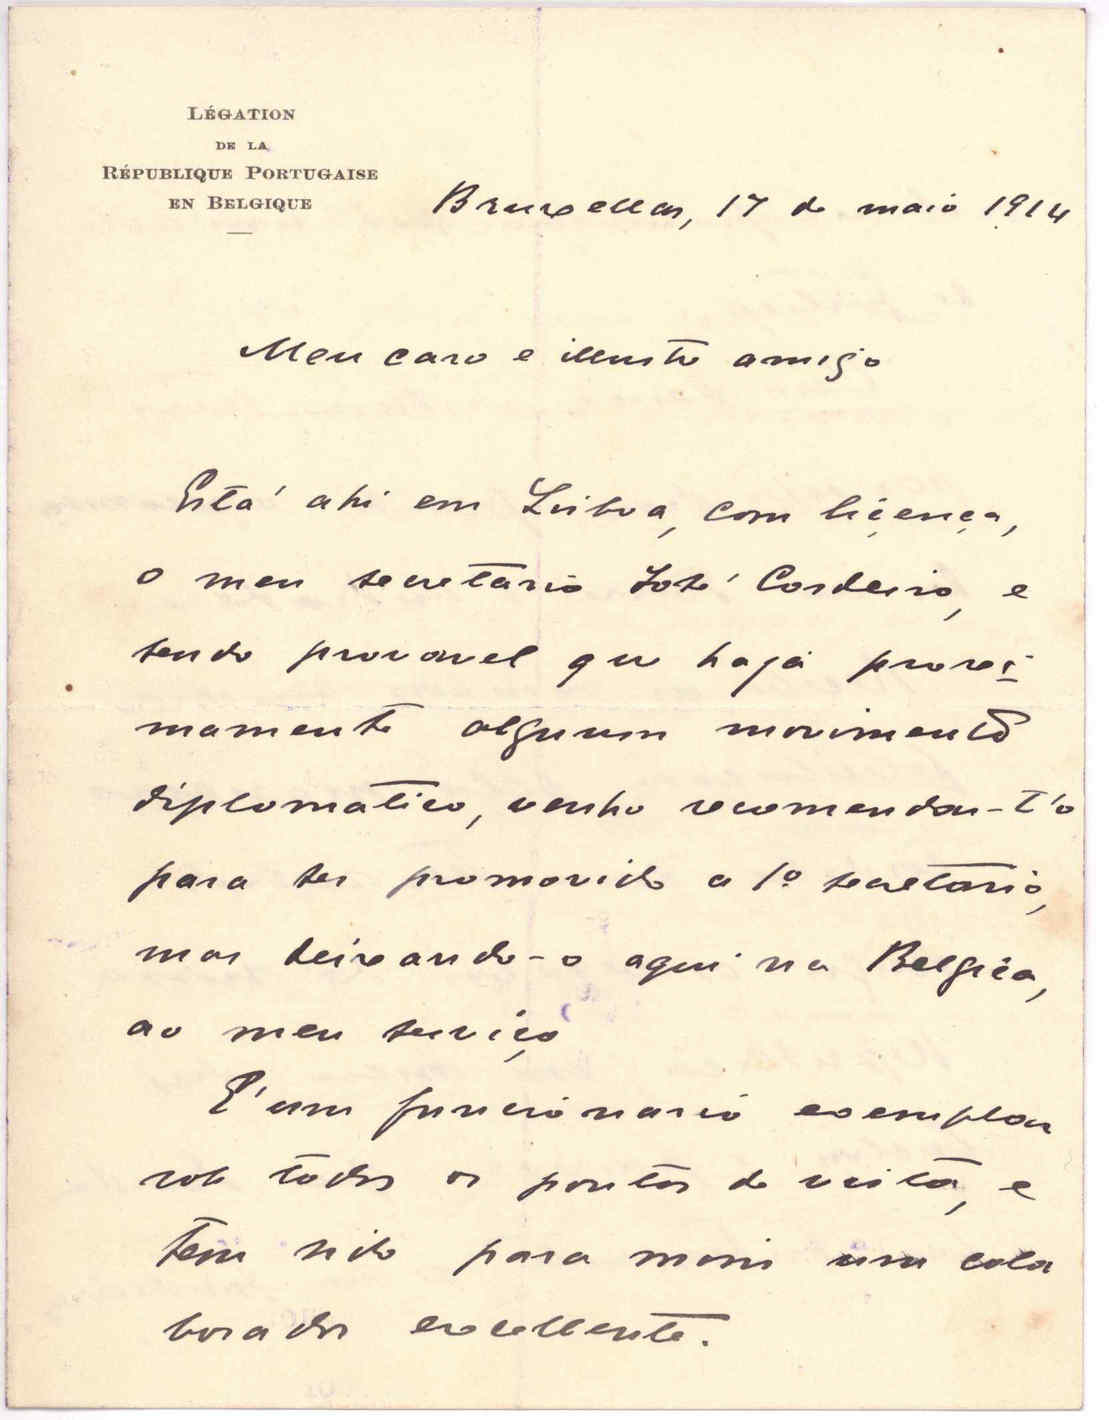 LÉGATION
DE LA
RÉPUBLIQUE PORTUGAISE
EN BELGIQUE
Bruxellas, 17 de maio 1914
Meu caro e illustre amigo
Está ahi em Lisboa, com liçença,
o meu secretario José Cordeiro, e
sendo provavel que haja proxi-
mamente algum movimento
diplomatico, venho recomendar-t'o
para ser promovido a 1º secretario,
mas deixando-o aqui na Belgica,
ao meu serviço
É um funcionario exemplar
sob todos os pontos de vista, e
tem sido para mim um cola
borador excellente.